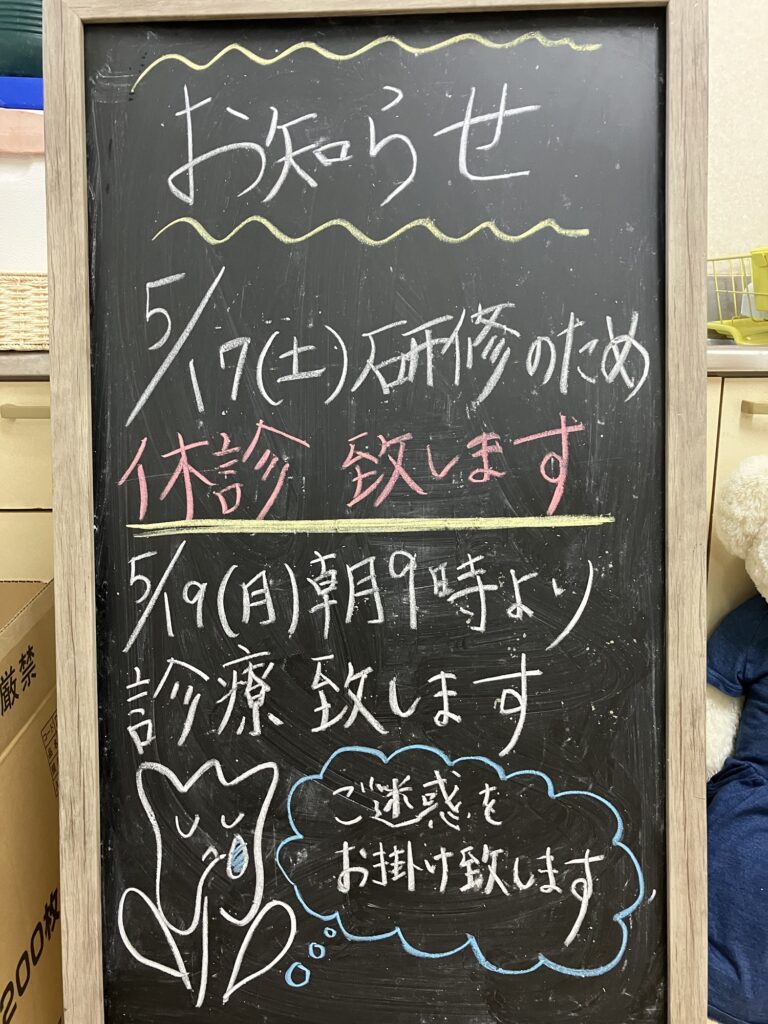 お知らせ
5/17(土)研修のため
休診 致します
5/19(月)朝9時より
診療 致します
ご迷惑を
お掛け致します
厳禁
200枚